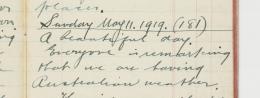 places.
Sunday May 11. 1919. (181)
A beautiful day.
Everyone is remarking
that we are having
Australian weather.